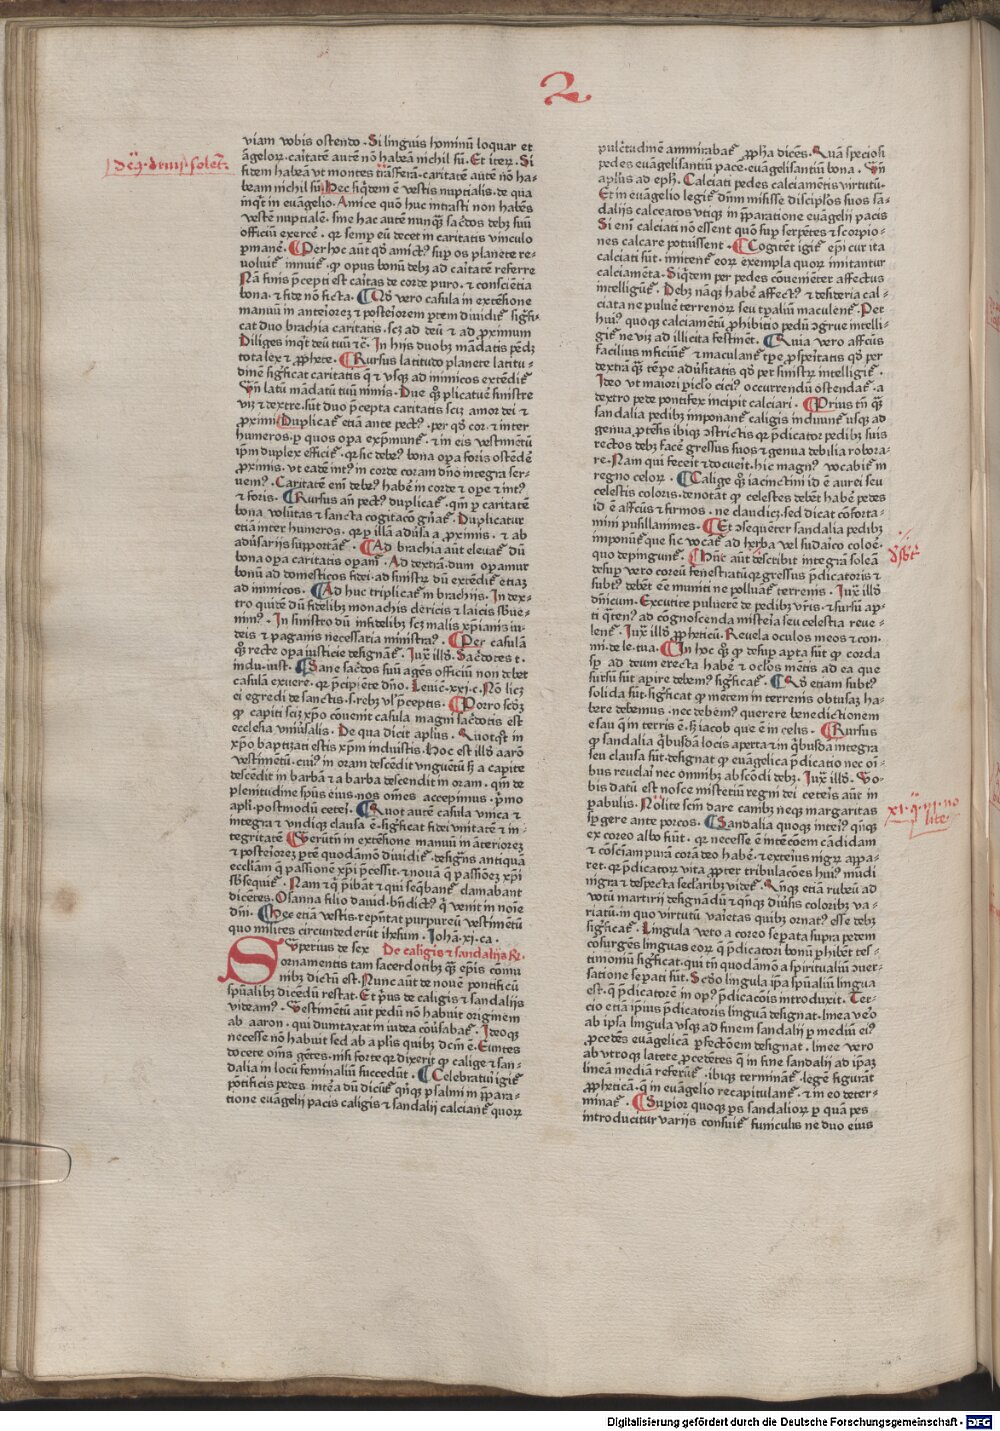 2
viam vobis ostendo. Si linguis hominū loquar et
āgelorꝝ. caritatē autē nō habeā nichil sū. Et iterꝝ. Si
fidem habeā vt montes trāsferā. caritatē autē nō ha-
beam nichil sū. Hec siqdem ē vestis nuptialis. de qua
inqt in euāgelio. Amice quō huc intrasti non habēs
vestē nuptialē. sine hac autē nunqꝫ sacdos debꝫ suū
officiū exercē. qꝛ semp eū decet in caritatis vinculo
pmanē. Per hoc aūt qd amictꝰ sup os planete re-
voluit innuit. qꝫ opus bonū debꝫ ad caitatē referre
Nā finis pcepti est caitas de corde puro. et consciētia
bona. et fide nō ficta. Qd vero casula in extēsione
manuū in anteriorē et posteriorem ptem diuidit sigfi-
cat duo brachia caritatis. scꝫ ad deū et ad proximum
Diliges inqt deū tuū etc. In hijs duobꝫ mādatis pēdꝫ
tota lex et pphete. Rursus latitudo planete latitu-
dinē figificat caritatis q et vsqꝫ ad inimicos extēdit
Vn latū mādatū tuū nimis. Due qꝫ plicatuē sinistre
viꝫ et dextre. sūt duo pcepta caritatis sciꝫ amor dei et
proximi. Duplicat etiā ante pectꝰ. per qd cor. et inter
humeros. p quos opa expmunt. et in eis vestimētū
ipm duplex efficit. qꝛ sic debeꝰ bona opa foris ostēdē
proximis. vt eadē intꝰ in corde coram dno integra ser-
uemꝰ. Caritatē enī debeꝰ habē in corde et ope et intꝰ
et foris. Rursus an pectꝰ duplicat. qm p caritatē
bona volūtas et sancta cogitaco gnat. Duplicatur
etiā inter humeros. qꝛ p illā aduersa a proximis. et ab
aduersarijs supportāt. Ad brachia aūt eleuat dū
bona opa caritatis opam. Ad dextrā. dum opamur
bonū ad domesticos fidei. ad sinistrā dū extēdit etiaꝫ
ad inimicos. Ad huc triplicat in brachijs. In dex-
tro quidē dū fidelibꝫ monachis clericis et laicis sbue-
nimꝰ. In sinistro dū infidelibꝫ scꝫ malis xpianis iu-
deis et paganis necessaria ministraꝰ. Per casulā
qꝫ recte opa iusticie designāt. Juxᵃ illd. Sacdotes t.
indu. iust. Sane sacdos suū agēs officiū non debet
casulā exuere. qꝛ pcipiēte dno. Leuic. xxi. c. Nō licꝫ
ei egredi de sanctis. s. rebꝫ vl pceptis. Porro scdꝫ
qꝫ capiti sciꝫ xpo cōuenit casula magni sacdotis est
ecclesia vniūsalis. De qua dicit aplus. Quotqꝫt in
xpo baptizati estis xpm induistis. Hoc est illd aarō
vestimētū. cuiꝰ in oram descēdit vnguētū qꝫ a capite
descēdit in barbā et a barba descendit in oram. qm de
plenitudine spus eius. nos omēs accepimus. pmo
apli. postmodū ceteri. Quot autē casula vnica et
integra et vndiqꝫ clausa ē. sigficat fidei vnitatē et in-
tegritatē. Verūtn in extēsione manuū in āteriorez
et posterioreꝫ ptē quodāmō diuidit. designās antiquā
eccliam q passionē xpi pcessit. et nouā q passioeꝫ xpi
sbsequit. Nam et q pibāt et qui seqbant clamabant
dicētes. Osanna filio dauid. bndictꝰ q venit in noīe
dni. Hec etiā vestis. repntat purpureū vestimētū
quo milites circumdederūt ihesum. Joha. xi. ca.
De caligis et sandalijs R.
Superius de sex
ornamentis tam sacerdotibꝫ qꝫ epis cōmu
nibꝫ dictū est. Nunc aūt de nouē pontificū
spualibꝫ dicēdū restat. Et pus de caligis et sandalijs
videamꝰ. Vestimētū aūt pedū nō habuit originem
ab aaron. qui dumtaxat in iudea cōuersabat. Ideoqꝫ
necesse nō habuit sed ab aplis quibꝫ dcm ē. Euntes
docete oms gētes. nisi forte qꝫ dixerit qꝫ calige et san-
dalia in locū feminaliū succedūt. Celebraturi igit
pōtificis pedes interea dū dicūt qnqꝫ psalmi in ppara-
tione euāgelij pacis caligis et sandalijs calciant quorꝝ
pulcritudinē ammirabat ppha dicēs. Quā speciosi
pedes euāgelisantiū pacē. euāgelisantiū bona. Vn
aplus ad eph. Calciati pedes calciamētis virtutū.
Et in euāgelio legit dnm misisse discipłos suos sa-
dalijs calceatos vtiqꝫ in pparatione euāgelij pacis
Si eni calciati nō essent quō sup serpētes et scorpio-
nes calcare potuissent. Cogitēt igit epi cur ita
calciati sūt. imitent eorꝝ exempla quorꝝ imitantur
calciamēta. Siqdem per pedes conuenienter affectus
intelligūt. Debꝫ nāqꝫ habē affectꝰ et desideria cal-
ciata ne pulueē terrenorꝝ seu tpaliū maculent. Per
huiꝰ quoqꝫ calciamētū phibitio pedū ɔgrue intelli-
git ne viꝫ ad illicita festinēt. Quia vero affcūs
facilius inficiūt et maculant tpe prosperitatis qd per
dextrā qꝫ tēpe aduersitatis qd per sinistrā intelligit.
Ideo vt maiori piclo ciciꝰ occurrendū ostendat. a
dextro pede pontifex incipit calciari. Prius tn qꝫ
sandalia pedibꝫ imponant caligis induunt vsqꝫ ad
genua ptensis ibiqꝫ ɔstrictis qꝛ pdicator pedibꝫ suis
rectos debꝫ facē gressus suos et genua debilia robora-
re. Nam qui fecerit et docuerit. hic magnꝰ vocabit in
regno celorꝝ. Calige qꝫ iacinctini id ē aurei seu
celestis coloris. denotāt qꝫ celestes debēt habē pedes
id ē affcūs et firmos. ne claudicꝫ. sed dicat cōforta-
mini pusillanimes. Et ɔsequēter sandalia pedibꝫ
imponūt que sic vocāt ad herba vel sudaico coloē.
quo depingunt. Hūt aūt describit integrā soleā
desup vero coreū fenestratū. qꝛ gressus pdicatoris et
subtꝰ debēt eē muniti ne polluāt terrenis. Juxᵃ illd
dnicum. Excutite puluerē de pedibꝫ vris. et sursū ap-
ti qtenꝰ ad cognoscenda misteria seu celestia reue-
lent. Juxᵃ illd ppheticū. Reuela oculos meos et con-
mi. de le. tua. In hoc qꝫ qꝫ desup apta sūt qꝫ corda
sp ad deum erecta habē et oclos mētis ad ea que
sursū sūt apire debemꝰ sigficat. Qd etiam subtꝰ
solida sūt. sigficat qꝫ mētem in terrenis obtusaꝫ ha-
bere debemus. nec debemꝰ querere benedictionem
esau q in terris ē. sꝫ iacob que ē in celis. Rursus
qꝫ sandalia qbusdā locis aperta et in qbusdā integra
seu clausa sūt. designat qꝫ euāgelica pdicatio nec oī-
bus reuelari nec omnibꝫ abscōdi debꝫ. Juxᵃ illd. Vo-
bis datū est nosce misteriū regni dei ceteris aūt in
pabulis. Nolite scm dare canibꝫ neqꝫ margaritas
spgere ante porcos. Sandalia quoqꝫ interiꝰ qnqꝫ
ex coreo albo fiūt. qꝛ necesse ē intētiōem cādidam
et cōsciam purā corā deo habē. et exterius nigrꝝ appa-
ret. qꝛ pdicatorꝝ vita propter tribulacōes huiꝰ mūdi
nigra et despecta seclaribꝫ videt. Aliqn etiā rubeū ad
votū martirij designādū et qnqꝫ diūsis coloribꝫ va-
riatū. in quo virtutū varietas quibꝫ ornatꝰ esse debꝫ
sigficat. Lingula vero a coreo sepata supra pedem
cōsurgēs linguas eorꝝ q pdicatori bonū phibēt tes-
timoniū sigficat. qui tn quodāmō a spiritualiū ɔuer-
satione sepati sūt. Scdo lingula ipa spualiū lingua
est. q pdicatorē in opꝰ pdicacōis introduxit. Ter-
cio etiā ipius pdicatoris linguā designat. linea vero
ab ipsa lingula vsqꝫ ad finem sandalij p mediū eiꝰ
procedēs euāgelicā pfectōem designat. linee vero
ab vtroqꝫ latere procedētes q in fine sandalij ad ipaꝫ
lineā mediā referūt. ibiqꝫ terminat. legē figurāt
propheticā. q in euāgelio recapitulant. et in eo deter-
minat. Supior quoqꝫ ps sandaliorꝝ p quā pes
introducitur varijs consuit funiculis ne duo eius
xi. q. iii. no
lite
Digitalisierung gefördert durch die Deutsche Forschungsgemeinschaft - DFG